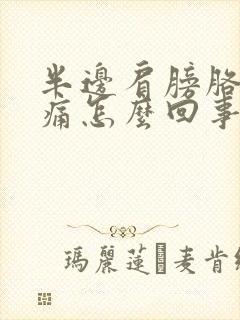 半邊肩膀胳
痛怎麼回事
瑪麗蓮麥肯